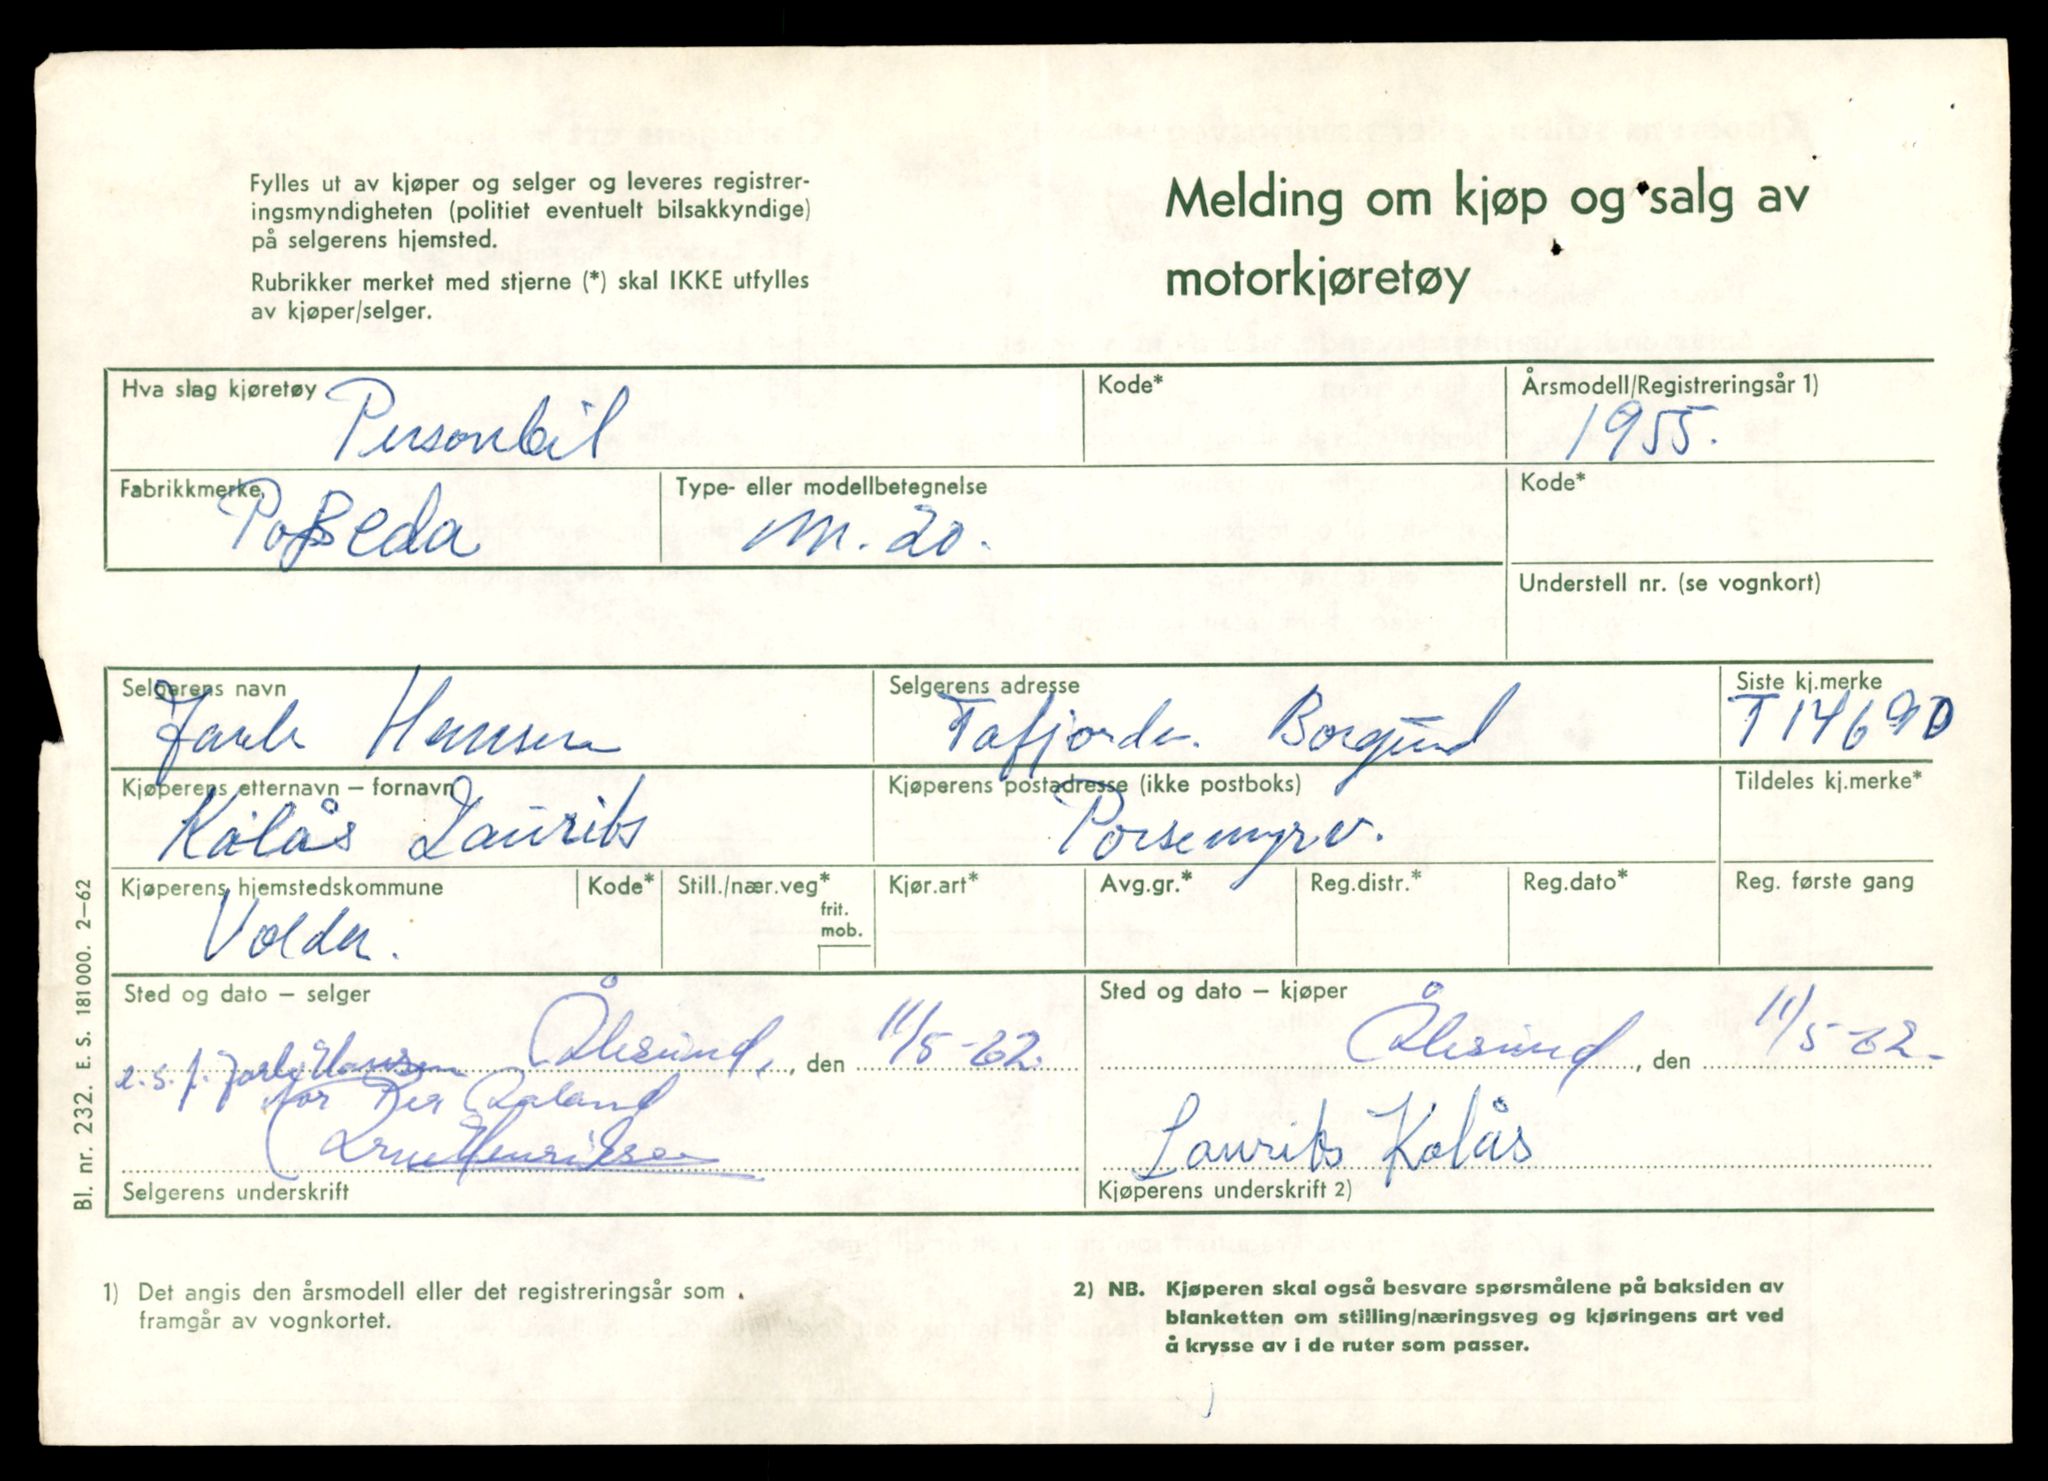 Fylles ut av kjøper og selger og leveres registrer-
ingsmyndigheten (politiet eventuelt bilsakkyndige)
på selgerens hjemsted.
Rubrikker merket med stjerne (*) skal IKKE utfylles
av kjøper/selger.
Melding om kjøp og salg av
motorkjøretøy
Hva slag kjøretøy
Personbil
Kode*
Årsmodell/Registreringsår 1)
1955.
Fabrikkmerke
Type- eller modellbetegnelse
M. 20.
Kode*
Understell nr. (se vognkort)
Selgerens navn
Jarle Hansen
Selgerens adresse
Tafjorden. Borgund
Siste kj.merke
T14690
Kjøperens etternavn – fornavn
Kolås Laurits
Kjøperens postadresse (ikke postboks)
Porsemyrv.
Tildeles kj.merke*
Kjøperens hjemstedskommune
Volda.
Kode*
Still./nær.veg*
frit.
mob.
Kjør.art*
Avg.gr.*
Reg.distr.*
Reg.dato*
Reg. første gang
Sted og dato – selger
Ålesund, den 11/5-62.
Jarle Hansen
for Per Aaland
Arne Henriksen
Selgerens underskrift
Sted og dato – kjøper
Ålesund, den 11/5-62.
Laurits Kolås
Kjøperens underskrift 2)
Bl. nr. 232. E. S. 181000. 2–62
1) Det angis den årsmodell eller det registreringsår som
framgår av vognkortet.
2) NB. Kjøperen skal også besvare spørsmålene på baksiden av
blanketten om stilling/næringsveg og kjøringens art ved
å krysse av i de ruter som passer.